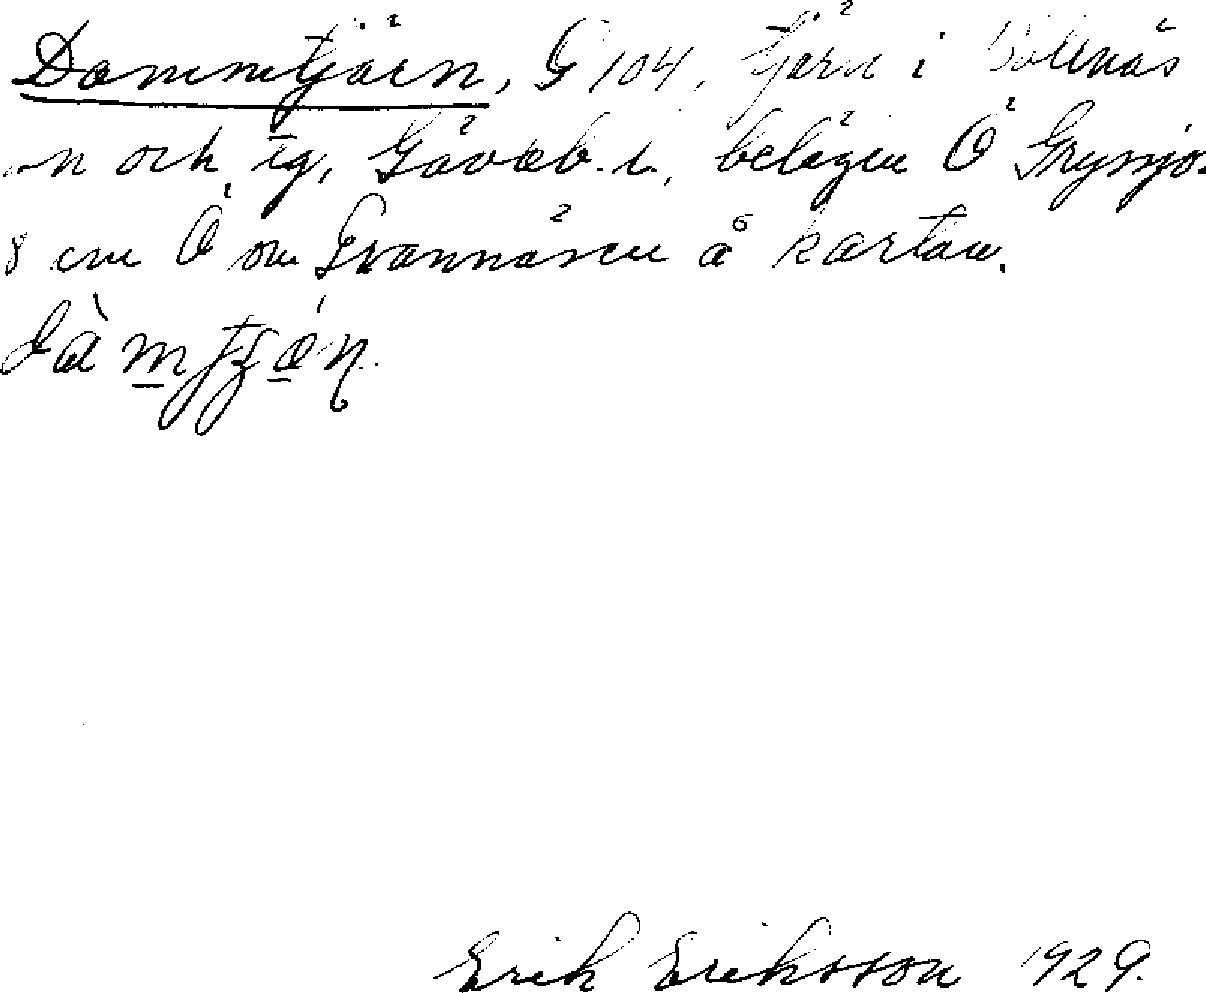 Dammtjärn, G 104, tjärn i Bollnäs
sn och tg, Gävleb. l., belägen Ö Grysjö.
8 cm Ö om Svannäsen å kartan.
Erik Eriksson 1929.